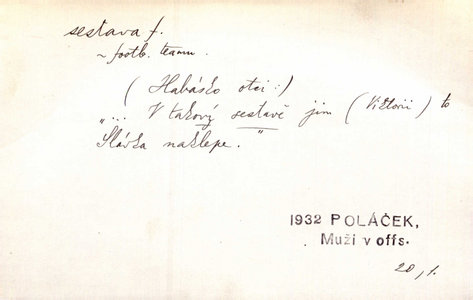 sestava f.
~ footb. teamu.
(Habásko otci:)
„... V takový sestavě jim (Viktorii) to
Slávka naklepe."
1932 POLÁČEK,
Muži v offs.
20,1.